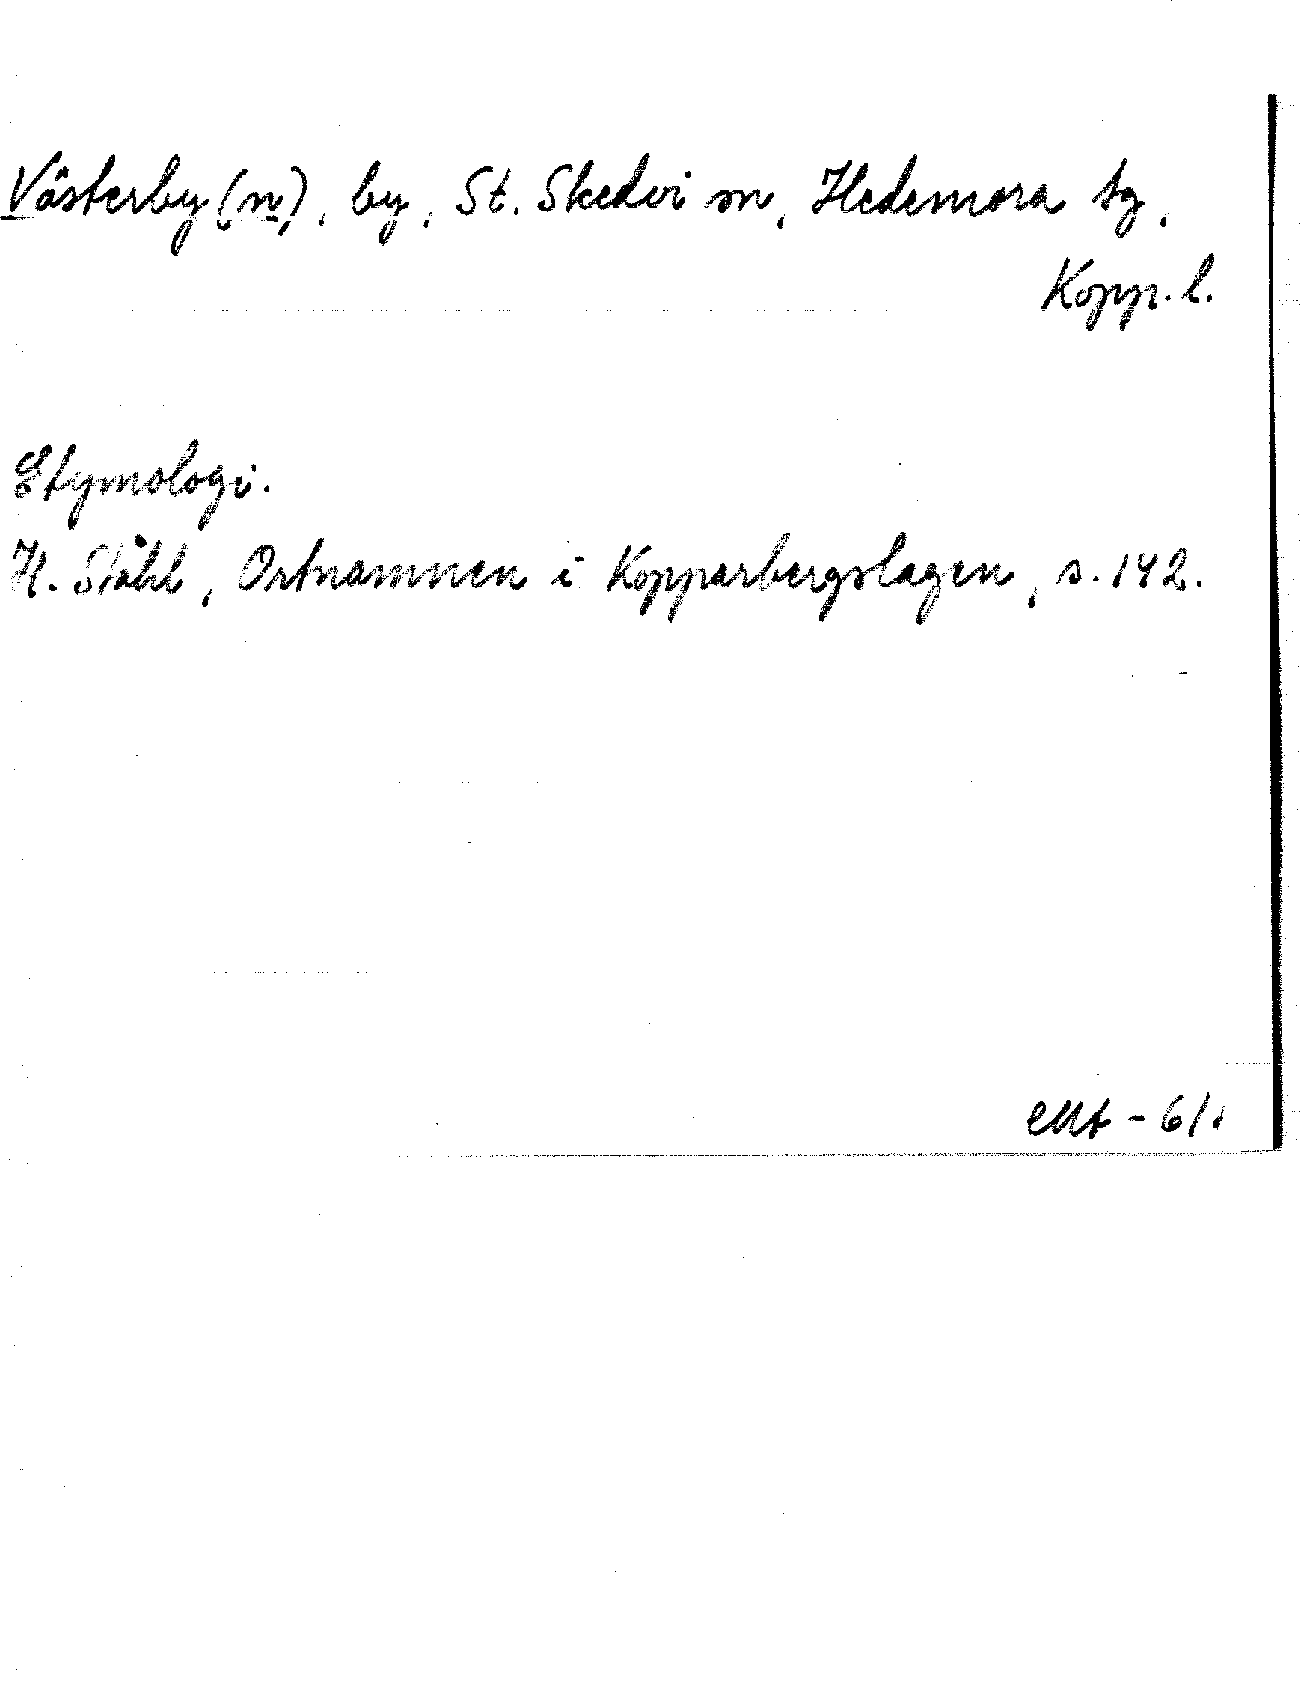 Västerby(n), by, St. Skedvi sn, Hedemora tg,
Kopp. l.
Etymologi.
H. Ståhl, Ortnamnen i Kopparbergslagen, s. 142.